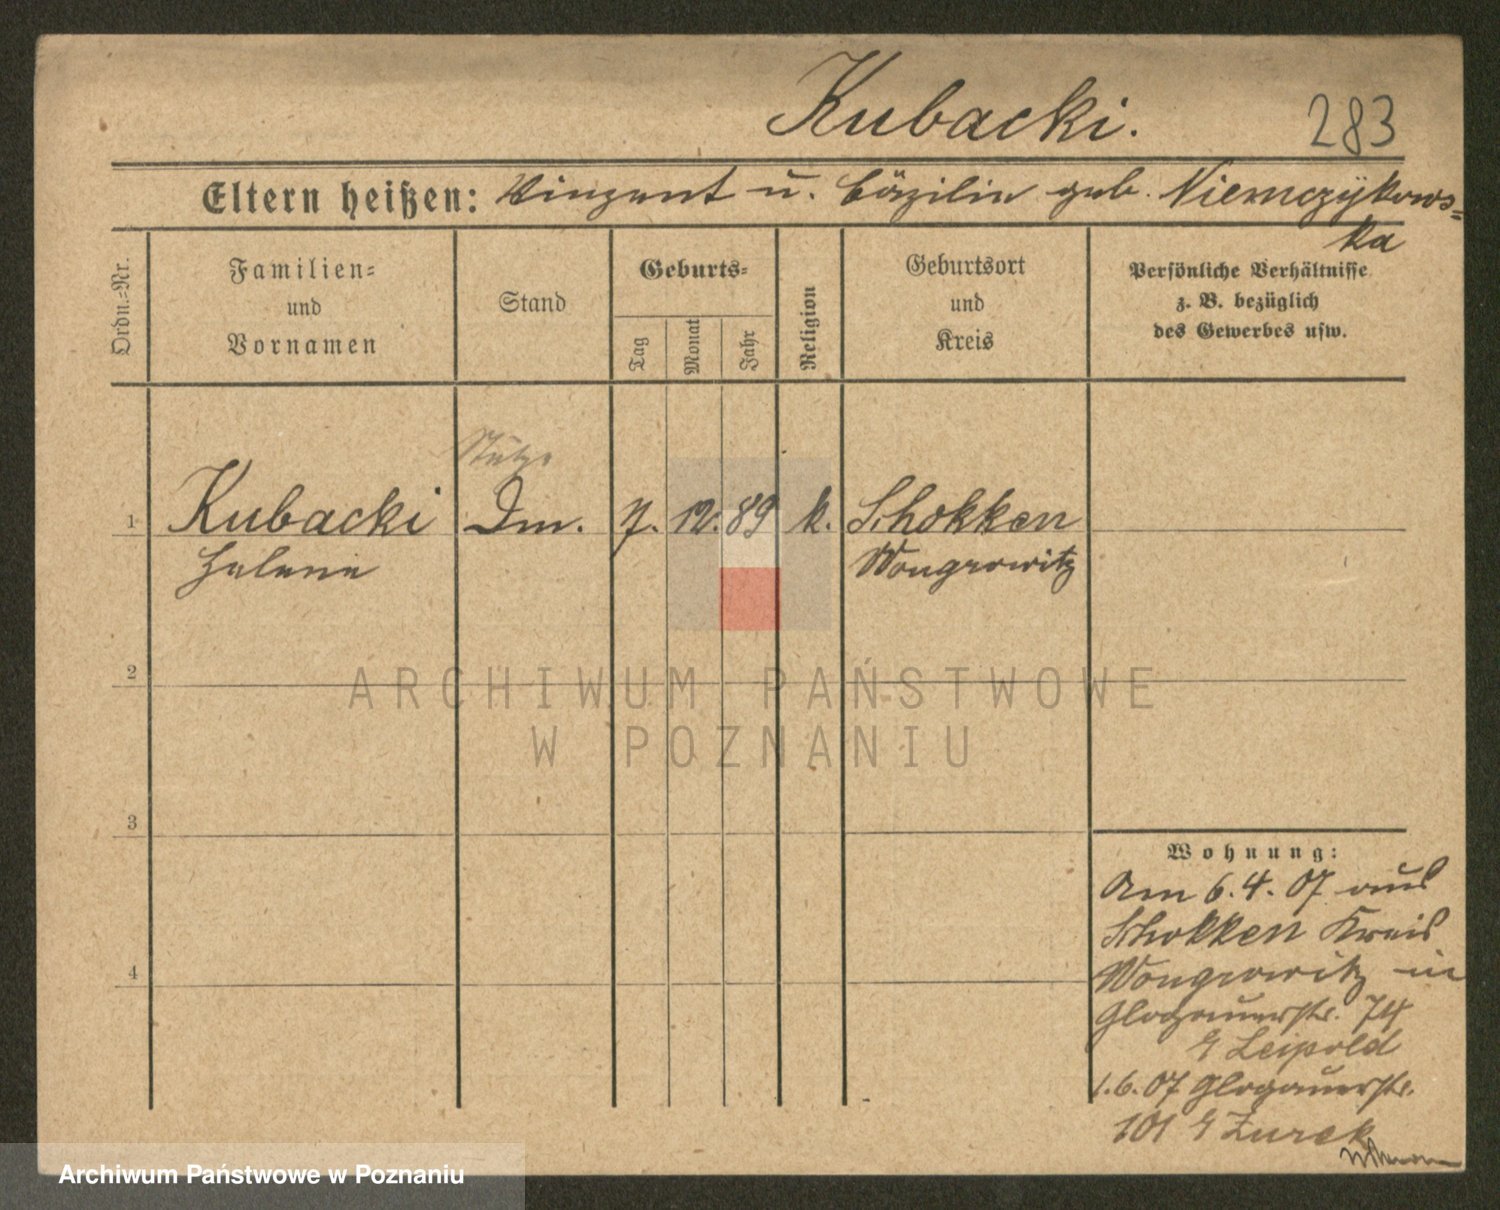 Kubacki.
283
Eltern heißen: Vinzent u. Cäzilie geb. Niemczykows=
ka
Ordn.=Nr.
Familien=
und
Vornamen
Stand
Geburts=
Tag
Monat
Jahr
Religion
Geburtsort
und
Kreis
Persönliche Verhältnisse
z. B. bezüglich
des Gewerbes usw.
Stütze
1 Kubacki Dm. 7. 12. 89 k. Schokken
Helene Wongrowitz
2
3
4
Wohnung:
Am 6.4.07 aus
Schokken Kreis
Wongrowitz in
Glogauerstr. 74
b/ Leipold
1.6.07 Glogauerstr.
101 b/ Zurek
ARCHIWUM PAŃSTWOWE
W POZNANIU
Archiwum Państwowe w Poznaniu